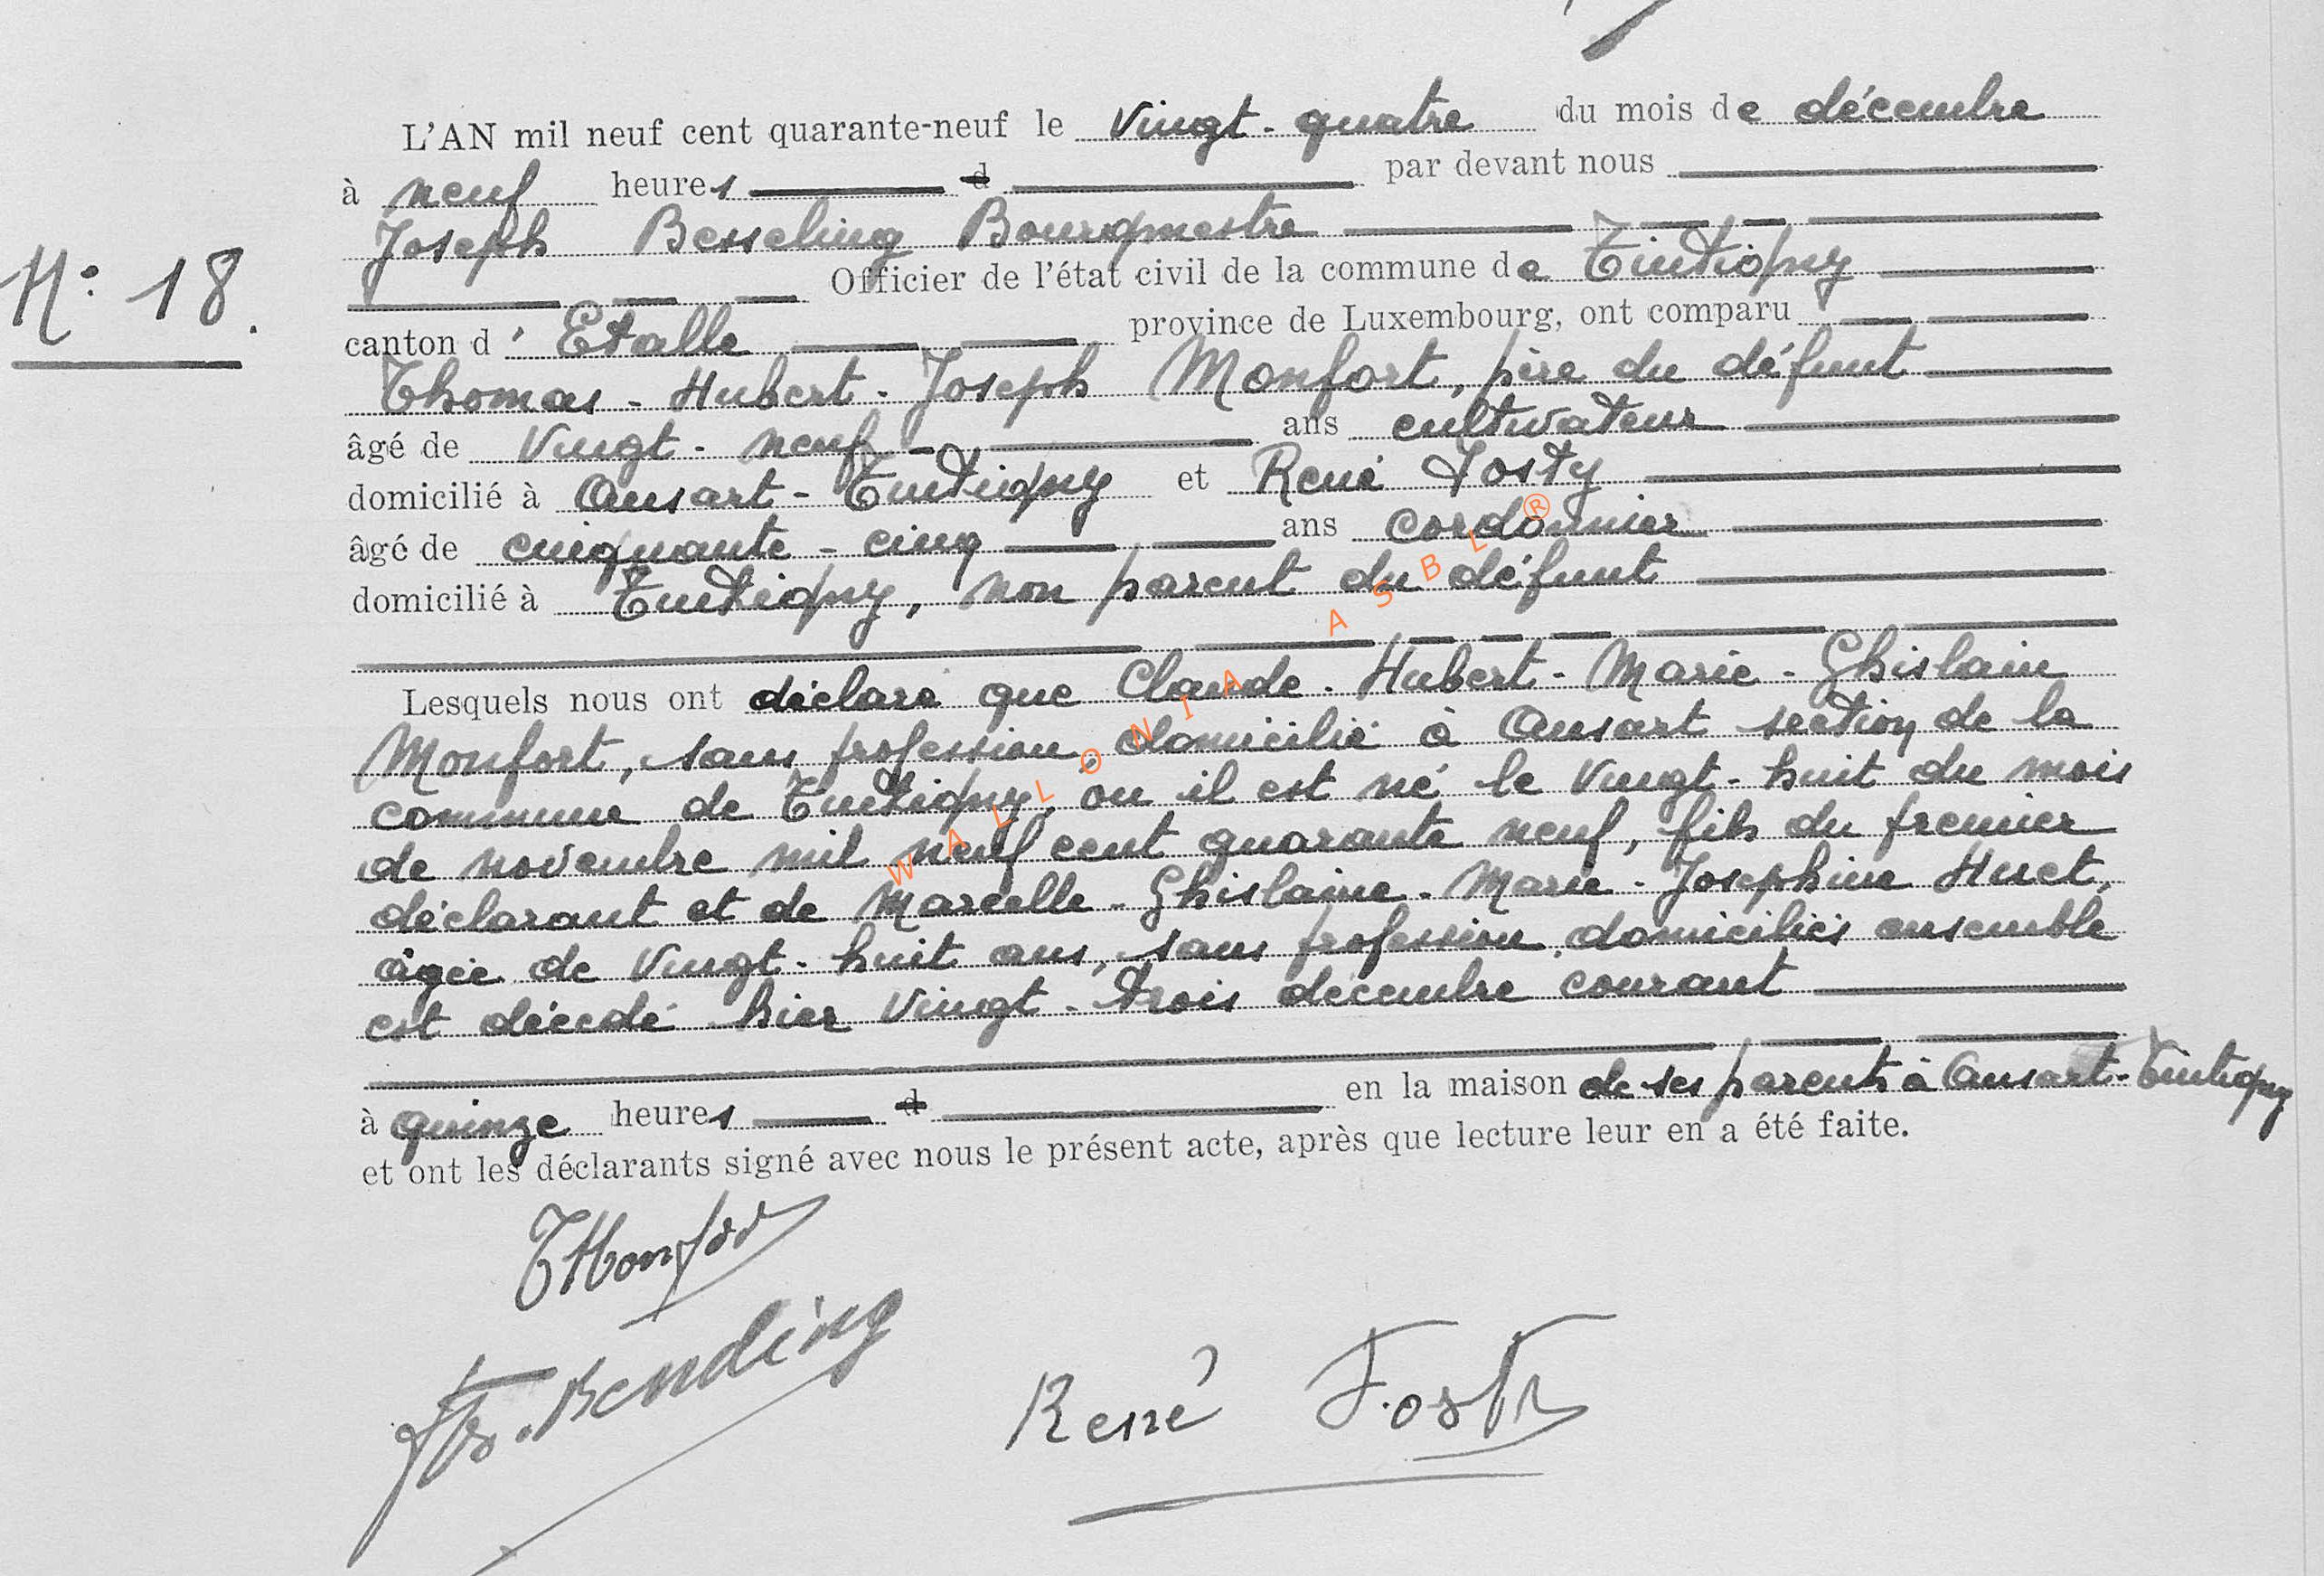 L'AN mil neuf cent quarante-neuf le Vingt-quatre du mois de décembre
à neuf heures d par devant nous
Joseph Besseling Bourgmestre
N° 18.
Officier de l'état civil de la commune de Tintigny
canton d'Etalle province de Luxembourg, ont comparu
Thomas-Hubert-Joseph Monfort, père du défunt
âgé de Vingt-neuf ans cultivateur
domicilié à Ansart-Tintigny et René Fosty
âgé de cinquante-cinq ans cordonnier
domicilié à Tintigny, non parent du défunt
Lesquels nous ont déclaré que Claude-Hubert-Marie-Ghislain
Monfort, sans profession, domicilié à Ansart section de la
commune de Tintigny, ou il est né le Vingt-huit du mois
de novembre mil neuf cent quarante neuf, fils du premier
déclarant et de Marcelle-Ghislaine-Marie-Josephine Huet,
âgée de Vingt-huit ans, sans profession, domiciliés ensemble
est décédé hier Vingt-trois décembre courant
à quinze heures d en la maison de ses parents à Ansart-Tintigny
et ont les déclarants signé avec nous le présent acte, après que lecture leur en a été faite.
WALLONIA ASBL ®
TMonfort
René Fosty